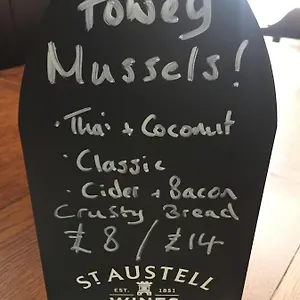 Fowey
Mussels!
· Thai + Coconut
· Classic
· Cider + Bacon
Crusty Bread
£8 / £14
ST AUSTELL
EST. 1851
WINES